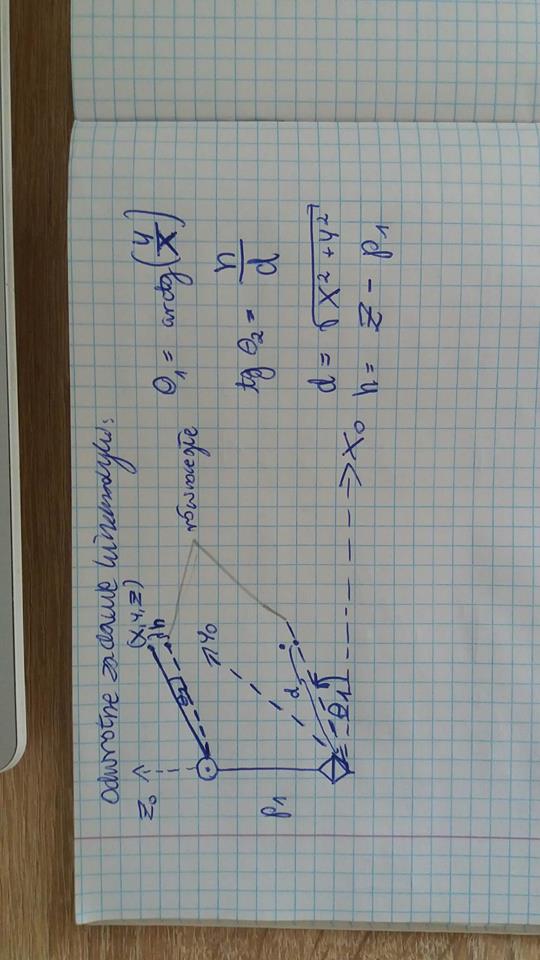 Odwrotne zadanie kinematyki:
Z₀
(X, Y, Z)
h
θ₂
równoległe
Y₀
p₁
d
θ₁
X₀
θ₁ = arctg(Y/X)
tg θ₂ = h/d
d = √(X² + Y²)
h = Z - p₁